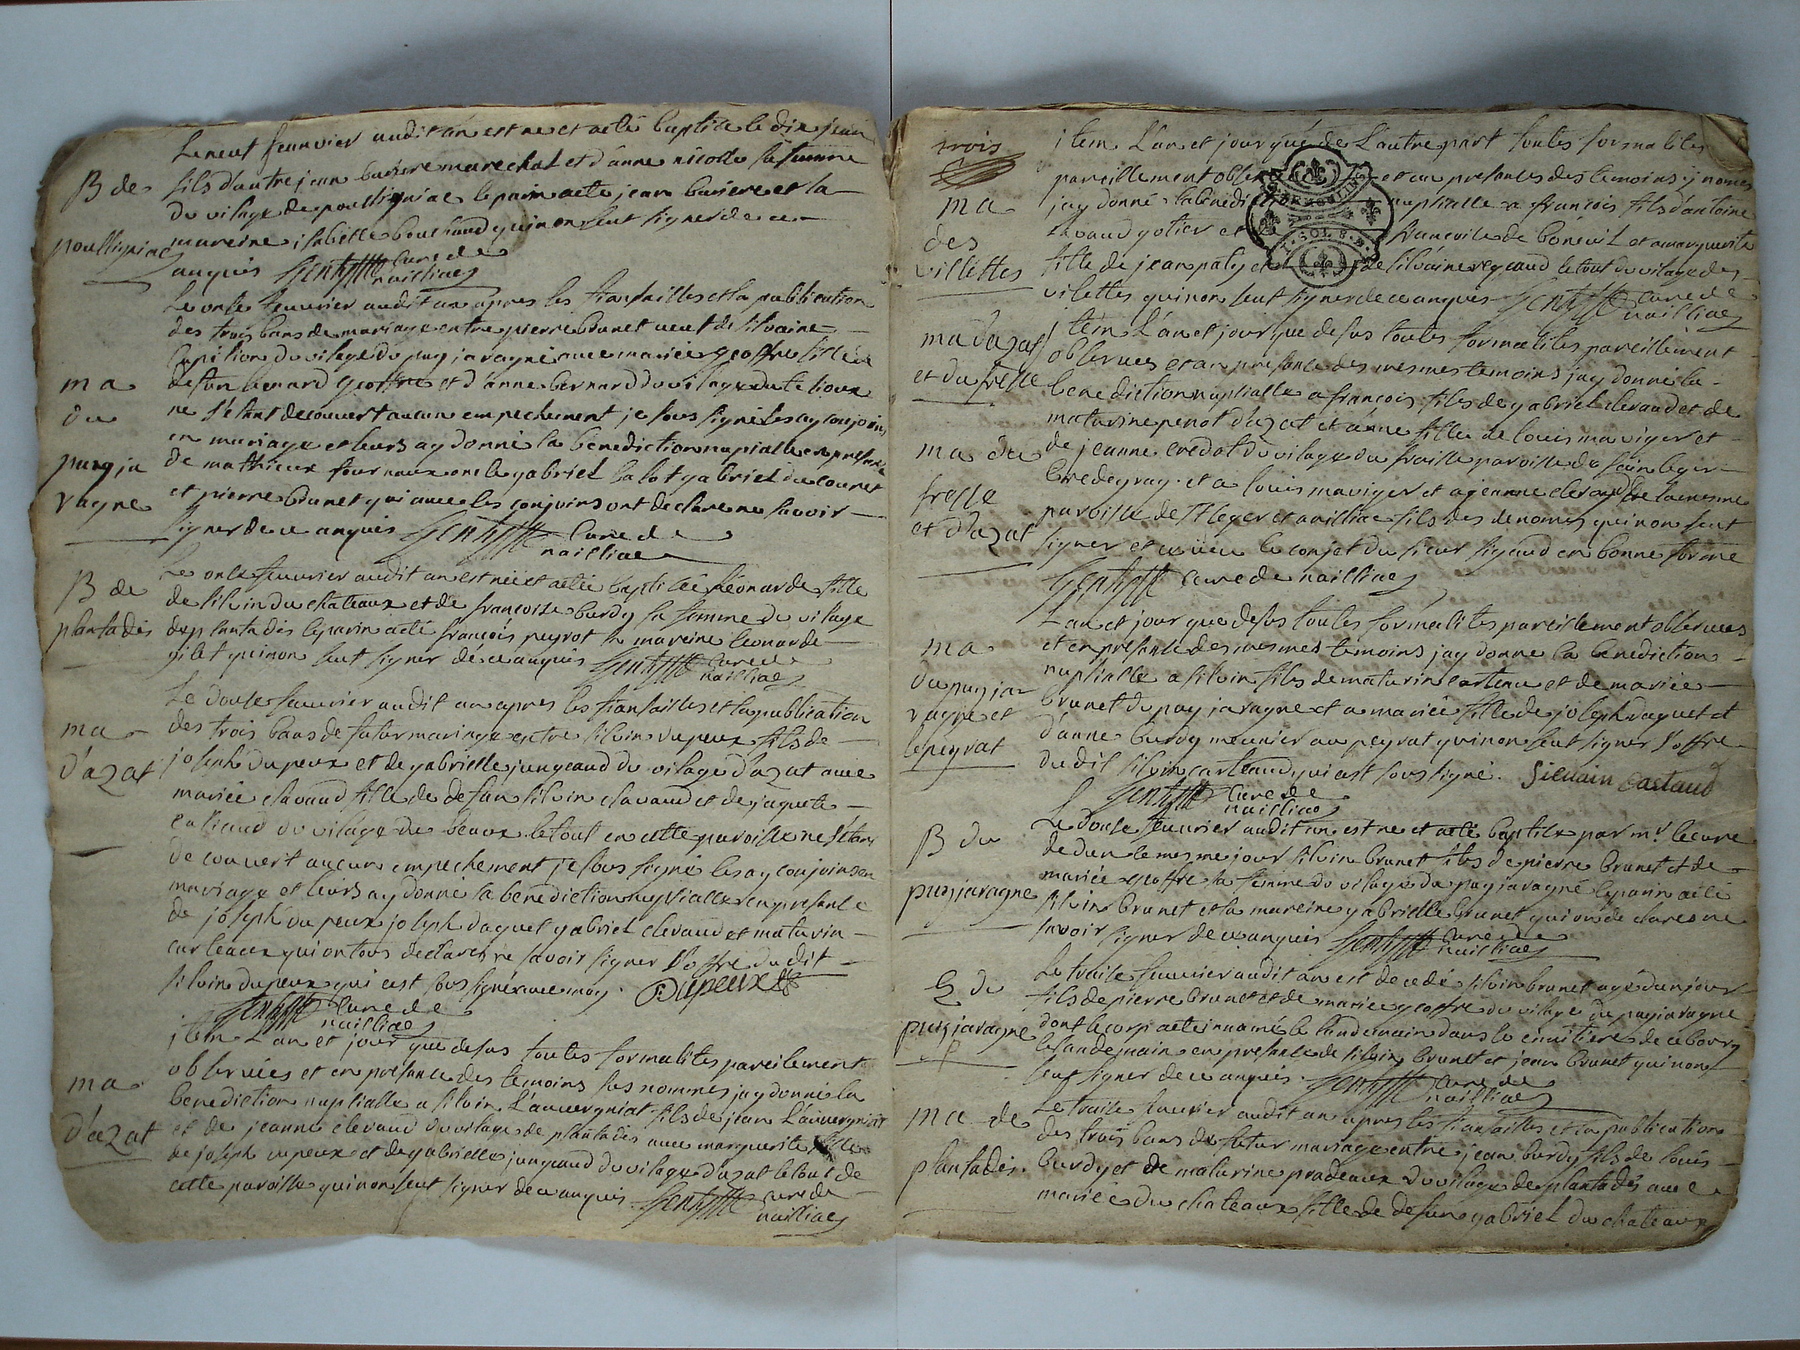 Le neuf feuvrier audit an est ne et a eté baptisé le dix jean
B de
fils d'autre jean bariere marechal et d'anne nicolle sa femme
du vilage de poulligniac le parin a eté jean bariere et la
poulligniac
mareine isabelle bouchaud qui non seut signer de ce
anquis Gentil curé de
nailliac
Le onse feuvrier audit an apres les fiansailles et la publication
des trois bans de mariage entre pierre brunet veuf de silvaine
du vilage du puy javagne avec mariée geoffre fille de
ma
defun lenard geoffre et d'anne bernard du vilage du
du
ne s'etant decouvert aucun empechement je sous signé les ay conjoins
puy ja
en mariage et leurs ay donné la benediction nupialle en presence
vagne
de mathieux fournoux gabriel lalot gabriel du couret
et pierre brunet qui avec les conjoins ont declare ne savoir
signer de ce anquis Gentil curé de
nailliac
Le onse feuvrier audit an est née et a eté baptisée léonarde fille
B de
de silvin du chateaux et de françoise burdy sa femme du village
plantadis
de plantadis le parin a eté françois peyrot la mareine leonarde
gilet qui non seut signer de ce anquis Gentil curé de
nailliac
Le douse feuvrier audit an apres les fiansailles et la publication
ma
des trois bans de futur mariage entre silvin dupeux fils de
d'azat
joseph dupeux et de gabrielle jungeaud du vilage d'azat avec
mariée clavaud fille de defun silvin clavaud et de jaquete
du vilage de beaux le tout en cette paroisse ne s'etant
decouvert aucun empechement je sous signé les ay conjoins en
mariage et leurs ay donné la benediction nupsialle en presence
de joseph dupeux joseph daquet gabriel clevaud et maturin
carteaux qui on tous declarés ne savoir signer s'offre du dit
silvin dupeux qui c'est sous signé avec moy. Dupeux
Gentil curé de
nailliac
item L'an et jour que desus toutes formalites pareilement
observées et en presance des temoins sus nommés jay donné la
ma
benediction nupsialle a silvin L'auvergniat fils de jean L'auvergniat
d'azat
et de jeanne clevaud du vilage de plantadis avec marguerite fille
de joseph dupeux et de gabrielle jungeaud du vilage d'azat le tout de
cette paroisse qui non seut signer de ce anquis. Gentil curé de
nailliac
trois
item L'an et jour que de L'autre part toutes formalites
pareillement et en presences des temoins y nomes
ma
jay donné la benedi nupsialle a françois fils d'antoine
des
et de boneuil et a marguerite
villettes
fille de jean et de silvaine le tout du vilage des
vilettes qui non seut signer de ce anquis Gentil curé de
nailliac
ma dazat
item L'an et jour que desus toutes formalites pareillement
et du fresse
observees et en presence des mesmes temoins jay donné la
benediction nupsialle a françois fils de gabriel clevaud et de
maturine penot d'azat et a anne fille de louis maviger et
ma du
de jeanne credot du vilage du paroisse de sain leger
fresse
bredegray et a louis maviger et a jeanne clevaud de la mesme
et d'azat
paroisse de st leger et a nailliac fils des denomes qui non seut
signer et veu le conjet du sieur rigaud en bonne forme
Gentil curé de nailliac
L'an et jour que desus toutes formalites pareillement observees
ma
et en presence des mesmes temoins jay donne la benediction
du puy ja
nupsialle a silvin fils de maturin carteau et de mariée
vagne et
brunet du puy javagne et a mariée fille de joseph daquet et
le peyrat
d'anne burdy meunier au peyrat qui non seut signer s'offre
du dit silvin carteaud qui c'est sous signé. Silvain Cartaud
Gentil curé de
nailliac
Le douse feuvrier audit an est ne et a eté baptise par mr le curé
B du
de dun le mesme jour silvin brunet fils de pierre brunet et de
mariée geoffre sa femme du vilage du puy javagne le parin a eté
puy javagne
silvin brunet et la mareine gabrielle brunet qui on declare ne
savoir signer de ce anquis Gentil curé de
nailliac
Le traise feuvrier audit an est decedé silvin brunet agé d'un jour
S du
fils de pierre brunet et de mariée geoffre du vilage du puy javagne
puy javagne
dont le corp a eté innumé le landemain dans le cimitiere de ce bourg
le landemain en presence de silvin brunet et jean brunet qui non
seut signer de ce anquis. Gentil curé de
nailliac
ma de
Le traise feuvrier audit an apres les fiansailles et la publication
des trois bans de futur mariage entre jean burdy fils de louis
plantadis.
burdy et de maturine pradeaux du vilage de plantadis avec
mariée du chateaux fille de defun gabriel du chateaux